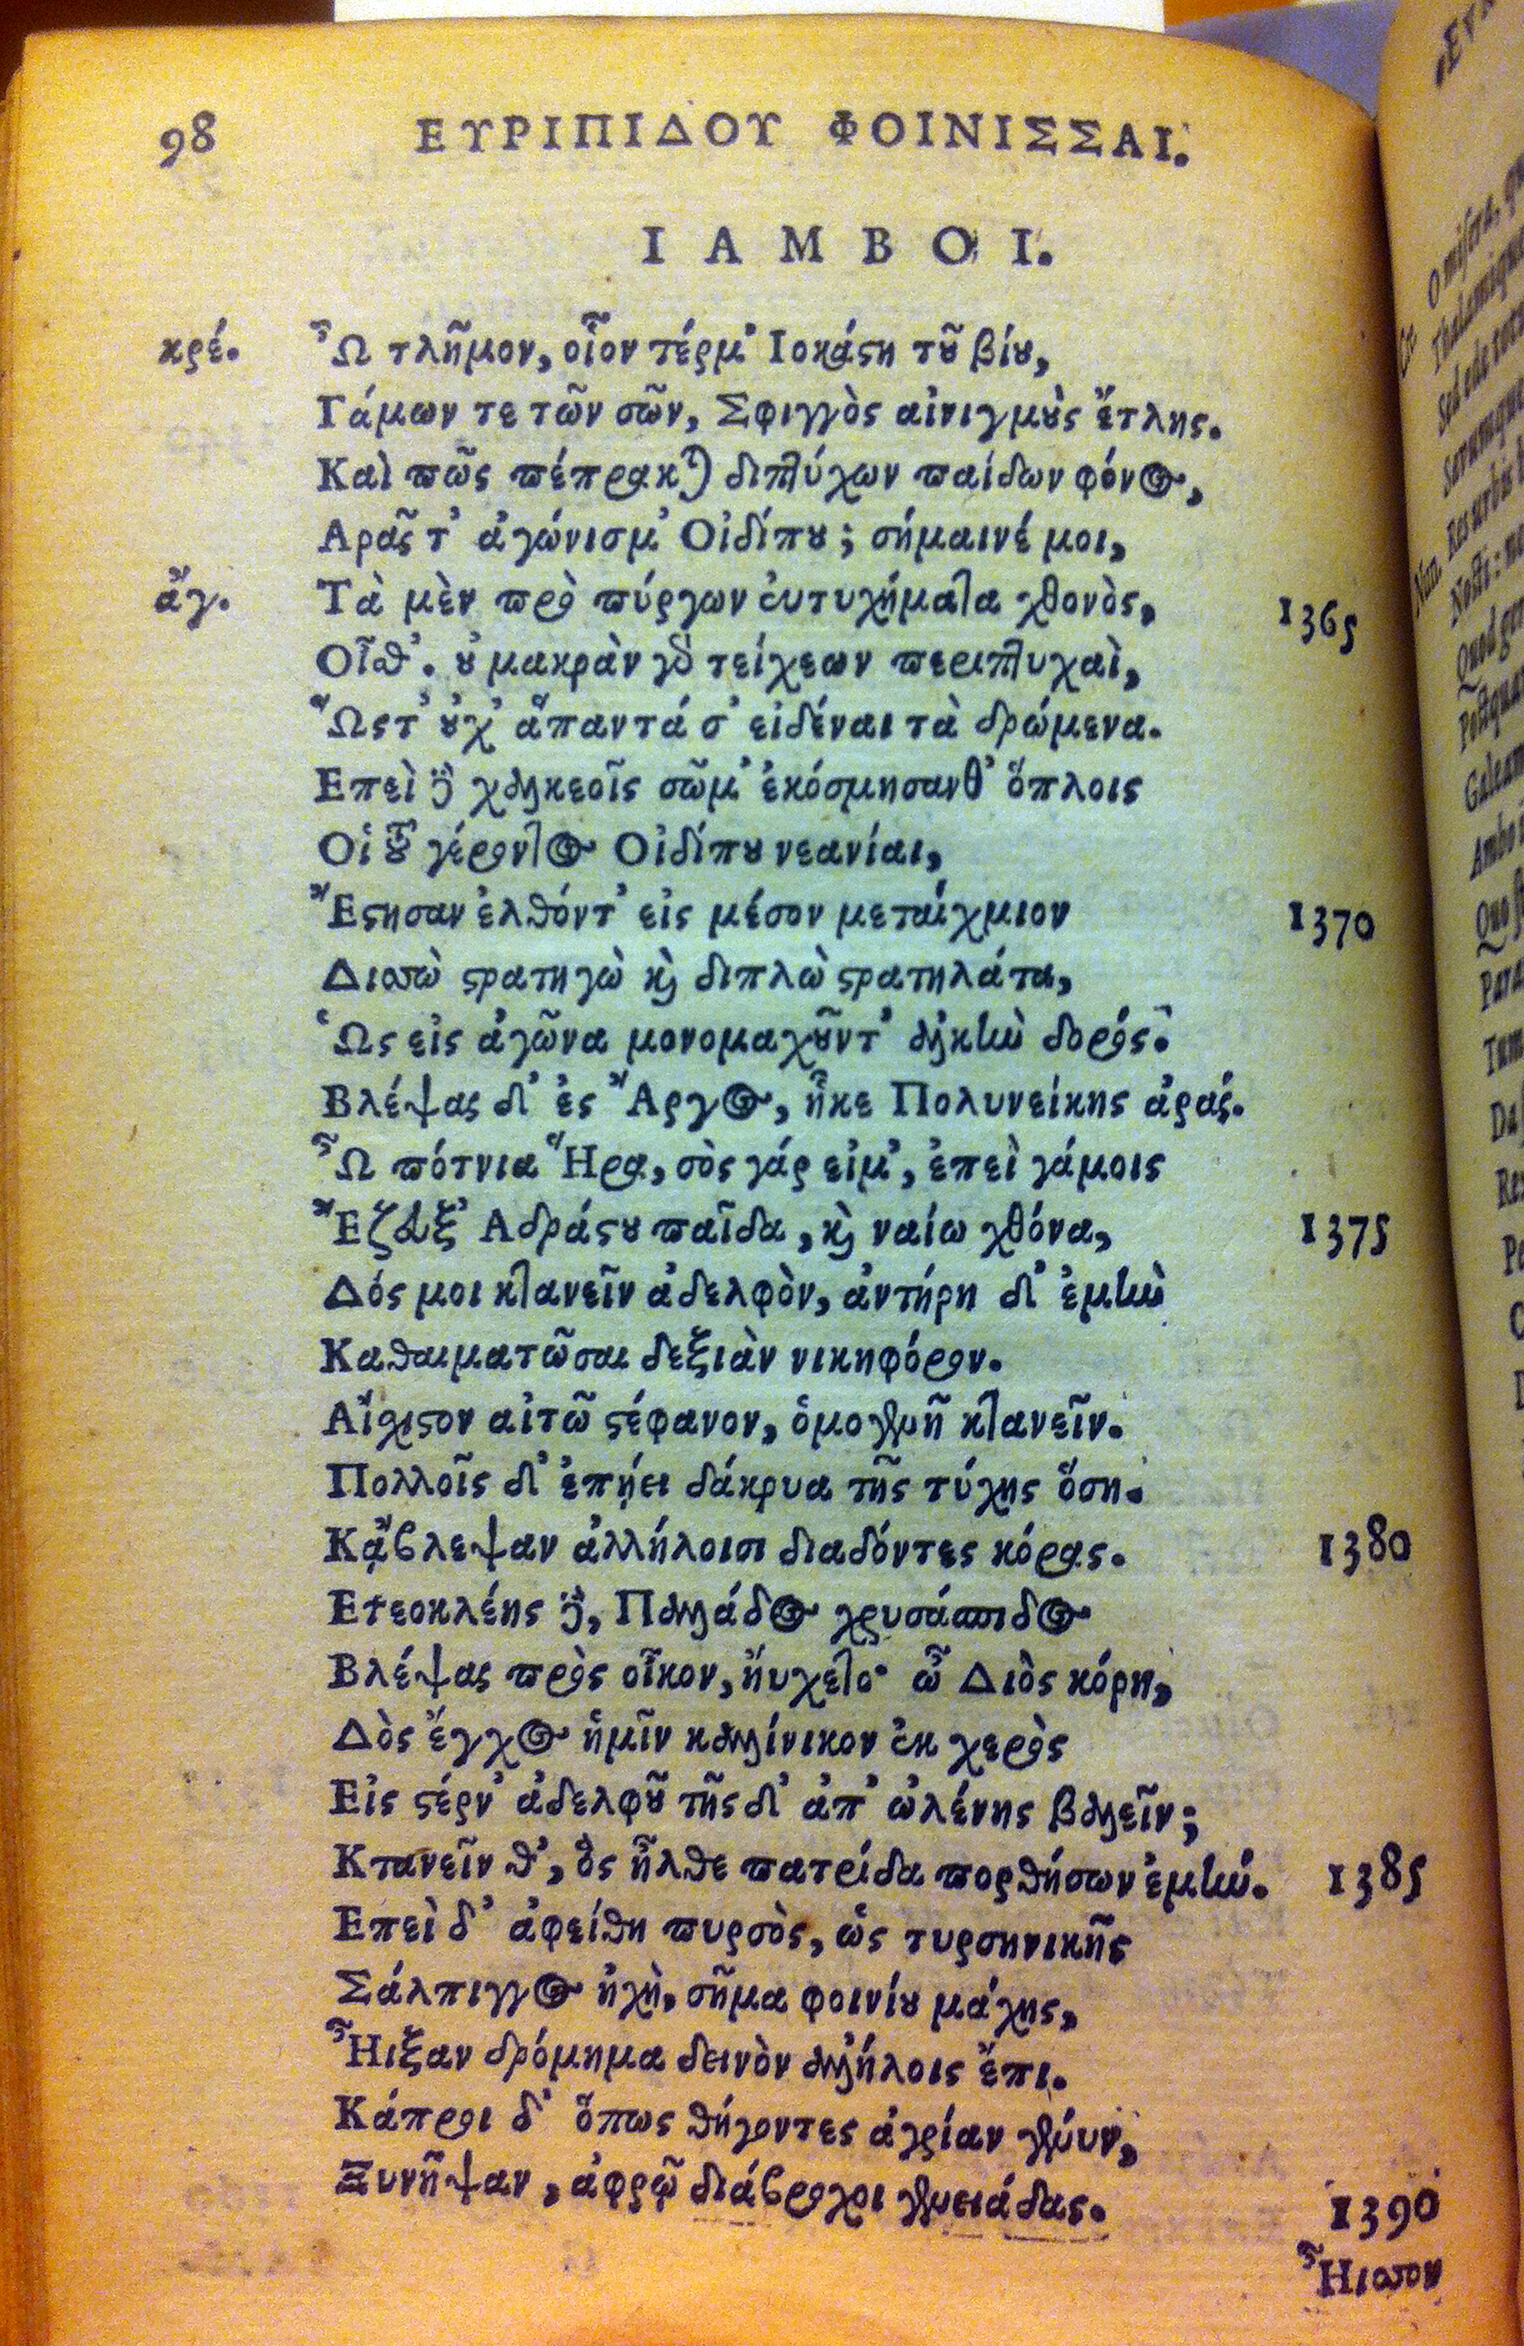 98 ΕΥΡΙΠΙΔΟΥ ΦΟΙΝΙΣΣΑΙ.
ΙΑΜΒΟΙ.
κρέ. Ὦ τλῆμον, οἷον τέρμ' Ιοκάϛη τȣ͂ βίȣ,
Γάμων τε τῶν σῶν, Σφιγγὸς αἰνιγμȣ̀ς ἔτλης.
Καὶ πῶς πέπρακται διπτύχων παίδων φόνος,
Αρᾶς τ' ἀγώνισμ' Οἰδίπȣ; σήμαινέ μοι,
ἄγ. Τὰ μὲν πρὸ πύργων ἐυτυχήματα χθονὸς, 1365
Οἶϑ'. ȣ̓ μακρὰν γὸ τείχεων περιπτυχαὶ,
Ὥςτ' ȣ̓χ' ἅπαντά σ' εἰδέναι τὰ δρώμενα.
Επεὶ δὲ χαλκεοῖς σῶμ' ἐκόσμησανθ' ὅπλοις
Οἱ τȣ͂ γέροντος Οἰδίπȣ νεανίαι,
Ἔϛησαν ἐλθόντ' εἰς μέσον μεταίχμιον 1370
Διασὼ ϛρατηγὼ καὶ διπλὼ ϛρατηλάτα,
Ὡς εἰς ἀγῶνα μονομαχȣ͂ντ' ἀλκὴν δορός.
Βλέψας δ' ἐς Ἄργος, ἧκε Πολυνείκης ἀράς.
Ὦ πότνια Ἥρα, σὸς γάρ εἰμ', ἐπεὶ γάμοις
Ἔζευξ' Αδράϛȣ παῖδα, καὶ ναίω χθόνα, 1375
Δός μοι κτανεῖν ἀδελφὸν, ἀντήρη δ' ἐμὴν
Καθαιματῶσαι δεξιὰν νικηφόρον.
Αἴχιϛον αἰτῶ ϛέφανον, ὁμογενῆ κτανεῖν.
Πολλοῖς δ' ἐπῄει δάκρυα τῆς τύχης ὅση.
Κᾄβλεψαν ἀλλήλοισι διαδόντες κόρας. 1380
Ετεοκλέης δὲ, Παλλάδος χρυσάσπιδος
Βλέψας πρὸς οἶκον, ἤυχετο· ὦ Διὸς κόρη,
Δὸς ἔγχος ἡμῖν καλλίνικον ἐκ χερὸς
Εἰς ϛέρν' ἀδελφȣ͂ τῆς δ' ἀπ' ὠλένης βαλεῖν;
Κτανεῖν θ', ὃς ἦλθε πατρίδα πορθήσων ἐμήν. 1385
Επεὶ δ' ἀφείθη πυρσὸς, ὡς τυρσηνικῆς
Σάλπιγγος ἠχὴ, σῆμα φοινίȣ μάχης,
Ἦιξαν δρόμημα δεινὸν ἀλλήλοις ἔπι.
Κάπροι δ' ὅπως θήγοντες ἀγρίαν γένυν,
Ξυνῆψαν, ἀφρῷ διάβροχοι γενειάδας. 1390
Ἦισσον